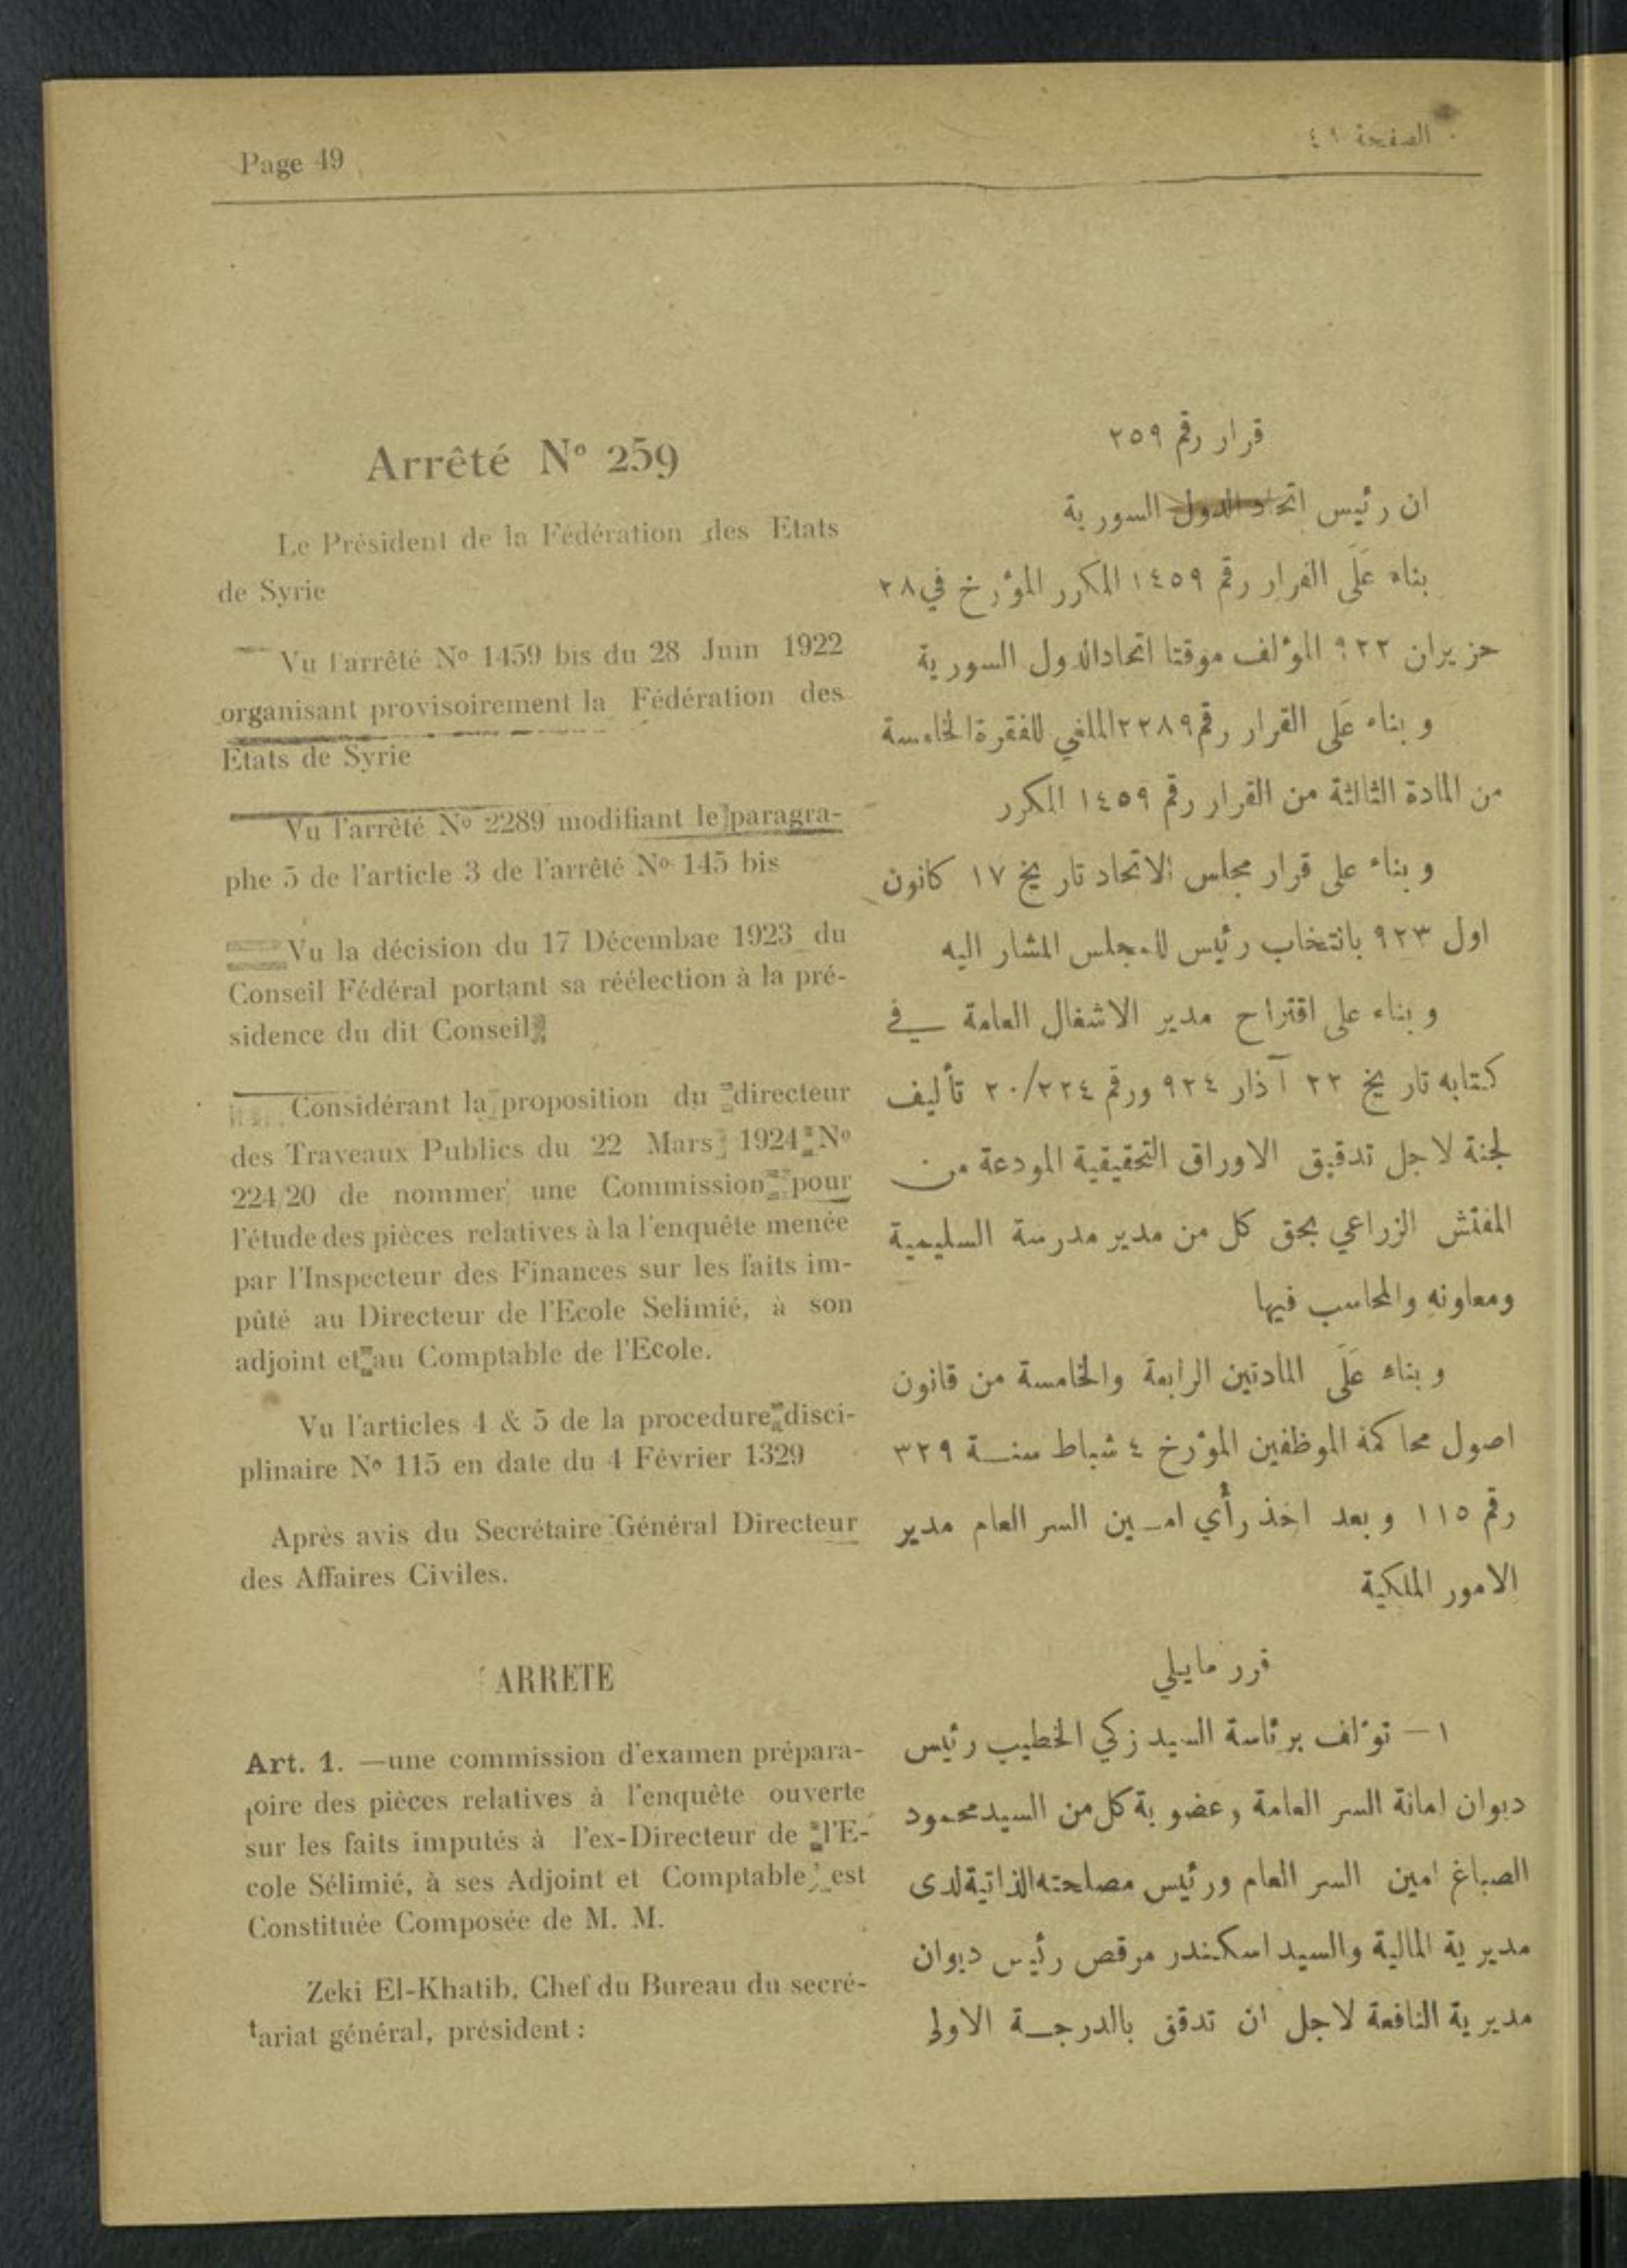 Page 49
الصفحة ٤٩
Arrêté Nº 259
Le Président de la Fédération des Etats
de Syrie
Vu l'arrêté Nº 1459 bis du 28 Juin 1922
organisant provisoirement la Fédération des
Etats de Syrie
Vu l'arrêté Nº 2289 modifiant le paragra-
phe 5 de l'article 3 de l'arrêté Nº 145 bis
Vu la décision du 17 Décembae 1923 du
Conseil Fédéral portant sa réélection à la pré-
sidence du dit Conseil
Considérant la proposition du directeur
des Traveaux Publics du 22 Mars 1924 Nº
224/20 de nommer une Commission pour
l'étude des pièces relatives à la l'enquête menée
par l'Inspecteur des Finances sur les faits im-
pûté au Directeur de l'Ecole Selimié, à son
adjoint et au Comptable de l'Ecole.
Vu l'articles 4 & 5 de la procedure disci-
plinaire Nº 115 en date du 4 Février 1329
Après avis du Secrétaire Général Directeur
des Affaires Civiles.
ARRETE
Art. 1. —une commission d'examen prépara-
toire des pièces relatives à l'enquête ouverte
sur les faits imputés à l'ex-Directeur de l'E-
cole Sélimié, à ses Adjoint et Comptable, est
Constituée Composée de M. M.
Zeki El-Khatib, Chef du Bureau du secré-
tariat général, président :
قرار رقم ٢٥٩
ان رئيس اتحاد الدول السورية
بناء عَلَى القرار رقم ١٤٥٩ المكرر المؤرخ في ٢٨
حزيران ٩٢٢ المؤلف موقتا اتحاد الدول السورية
وبناء عَلَى القرار رقم ٢٢٨٩ الملغي للفقرة الخامسة
من المادة الثالثة من القرار رقم ١٤٥٩ المكرر
وبناء على قرار مجلس الاتحاد تاريخ ١٧ كانون
اول ٩٢٣ بانتخاب رئيس للمجلس المشار اليه
وبناء على اقتراح مدير الاشغال العامة في
كتابه تاريخ ٢٢ آذار ٩٢٤ ورقم ٢٠/٢٢٤ تأليف
لجنة لاجل تدقيق الاوراق التحقيقية المودعة من
المفتش الزراعي بحق كل من مدير مدرسة السليمية
ومعاونه والمحاسب فيها
وبناء عَلَى المادتين الرابعة والخامسة من قانون
اصول محاكمة الموظفين المؤرخ ٤ شباط سنة ٣٢٩
رقم ١١٥ وبعد اخذ رأي امين السر العام مدير
الامور الملكية
قرر مايلي
١ — تؤلف برئاسة السيد زكي الخطيب رئيس
ديوان امانة السر العامة وعضوية كل من السيد محمود
الصباغ امين السر العام ورئيس مصلحته الذاتية لدى
مديرية المالية والسيد اسكندر مرقص رئيس ديوان
مديرية النافعة لاجل ان تدقق بالدرجة الاولى